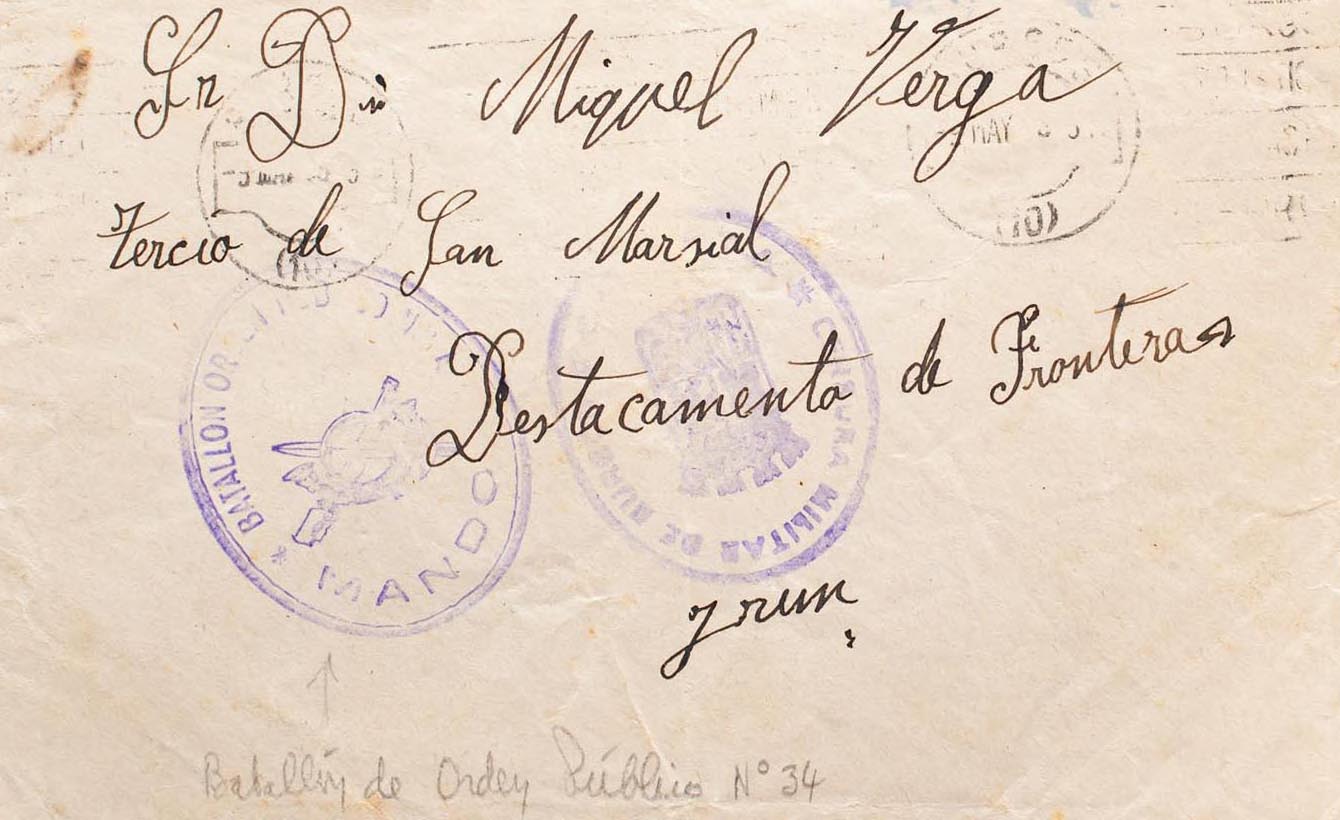 Sr Dn Miguel Verga
MAY
Tercio de San Marsial
(10)
BATALLON
* MANDO
* CENSURA MILITAR DE
Destacamento de Fronteras
Yrun
Batallón de Orden Público Nº 34